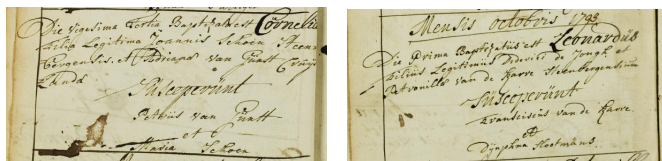 Die Vigesima Tertia Baptizata est Cornelia
filia Legitima Joannis Schoen Steen
bergensis et Judicae van Gunst Conjugum
Susceperünt
Petrüs van Günst
et
Maria Schoen
Mensis octobris 1793
Die Prima Baptizatus est Leonardüs
filius Legitimüs Diderici de Jongh et
Petronilla van de Karre Steenbergensium
Süsceperünt
Franciscüs van de Karre
et
Dÿmphna Hootmans